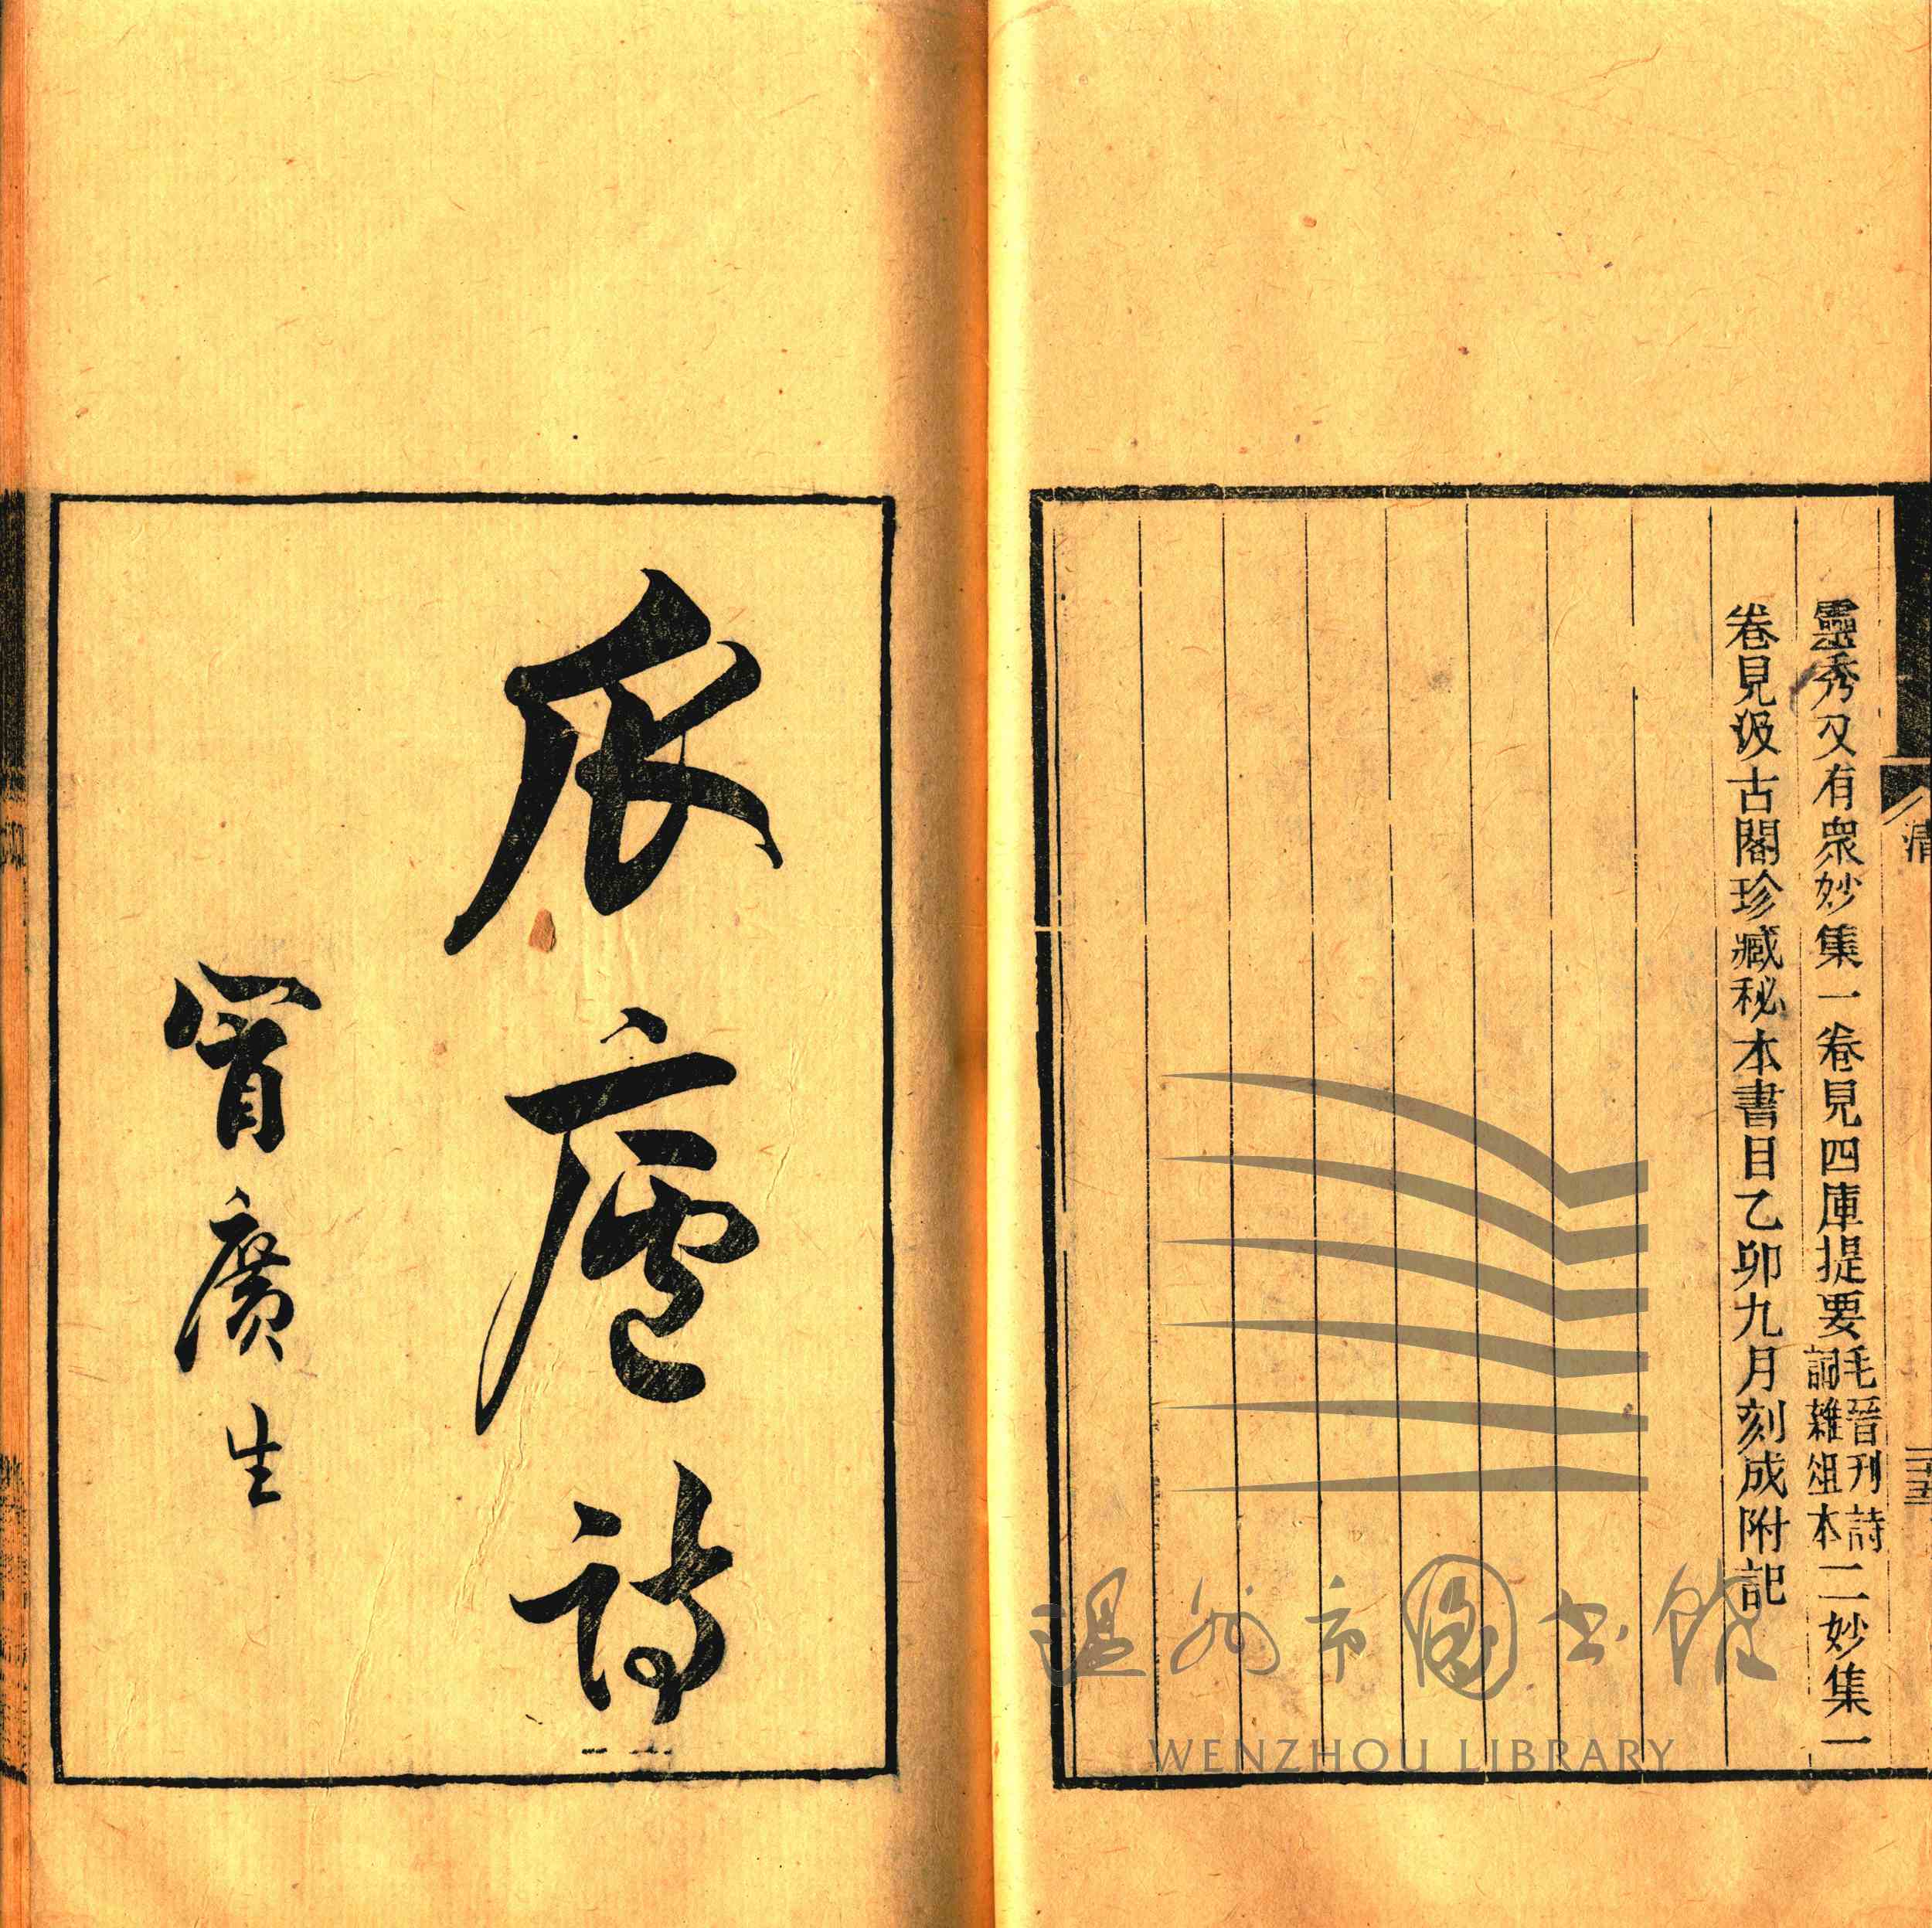 靈秀又有衆妙集一卷見四庫提要毛晉刊詩詞雜俎本二妙集一
卷見汲古閣珍藏秘本書目乙卯九月刻成附記
瓜廬詩
冒廣生
温州市图书馆
WENZHOU LIBRARY